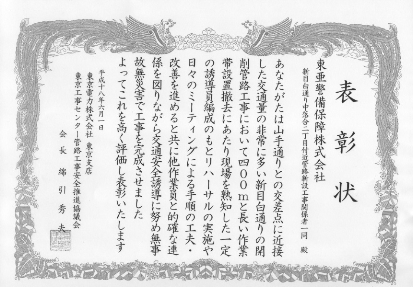 表彰状
東亜警備保障株式会社
新目白通り中落合二丁目付近管路新設工事関係者一同 殿
あなたがたは山手通りとの交差点に近接
した交通量の非常に多い新目白通りの開
削管路工事において四00mと長い作業
帯設置撤去にあたり現場を熟知した一定
の誘導員編成のもとリハーサルの実施や
日々のミーティングによる手順の工夫・
改善を進めると共に他作業員と的確な連
係を図りながら交通安全誘導に努め無事
故無災害で工事を完成させました
よってこれを高く評価し表彰いたします
平成十八年六月一日
東京電力株式会社 東京支店
東京工事センター管路工事安全推進協議会
会長 綿引秀夫